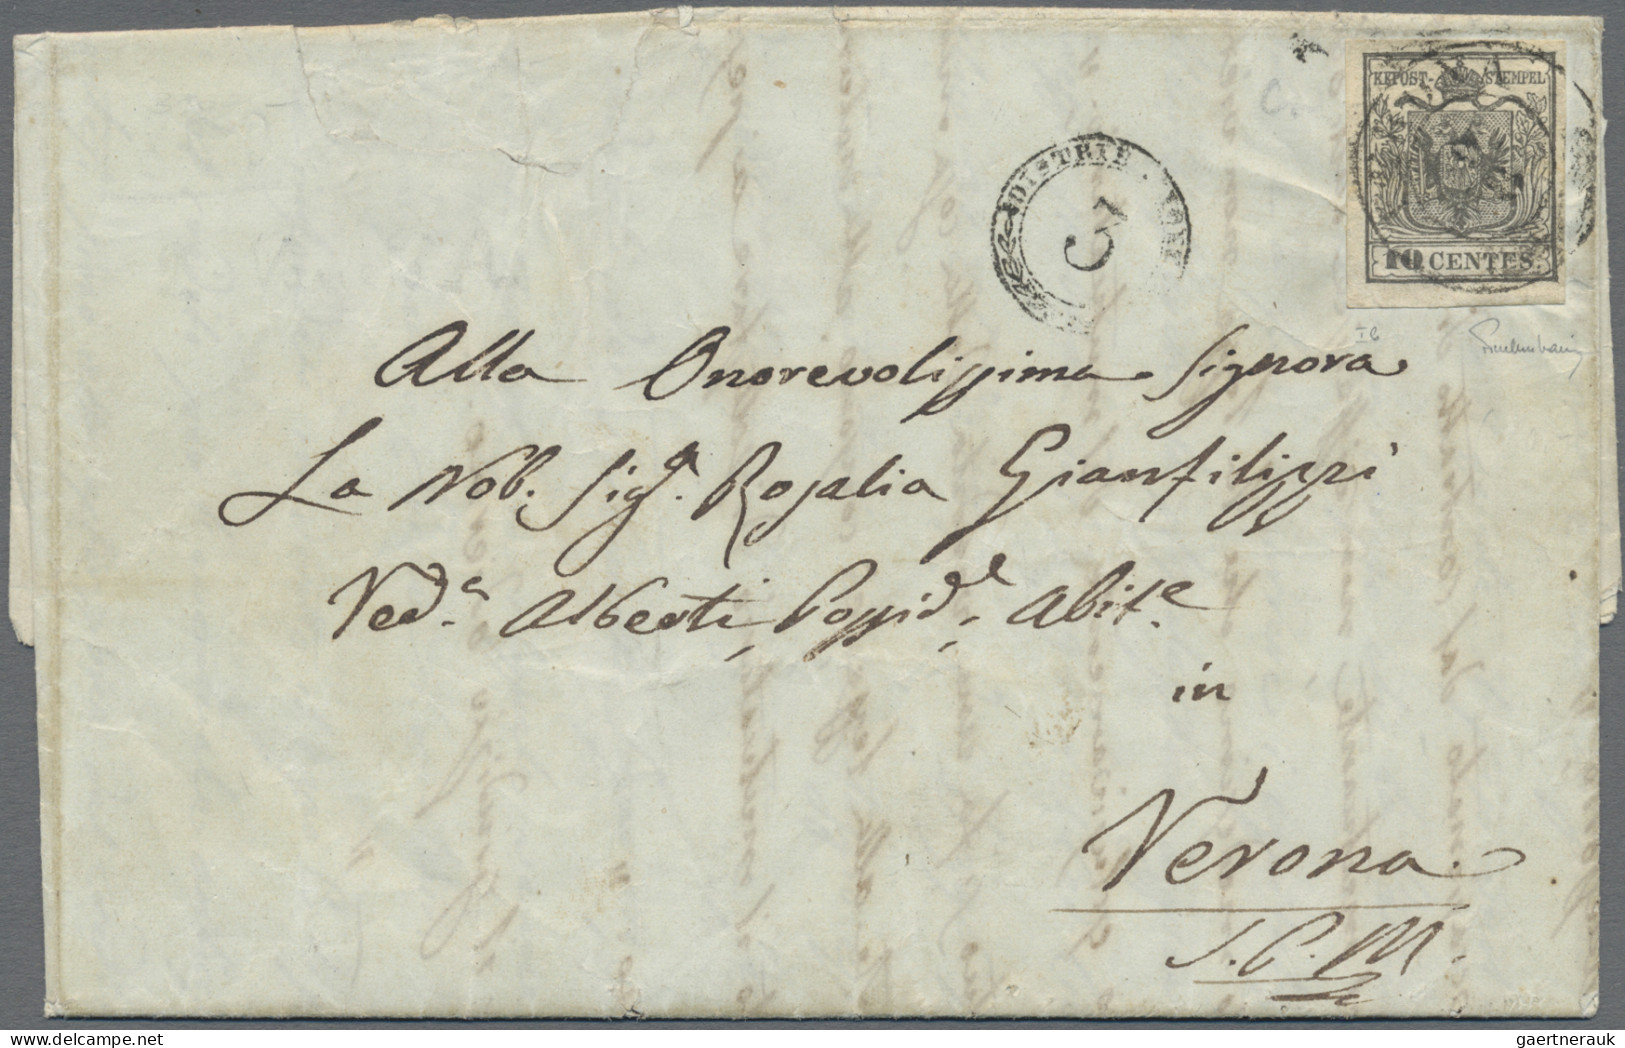 KKPOST-STEMPEL
10 CENTES.
DISTRIB
3
Alla Onorevolissima Signora
La Nob. Sig.a Rosalia Gianfilippi
Ved.a Alberti, Possid.e Abit.e
in
Verona
S.P.M.
gaertnerauk